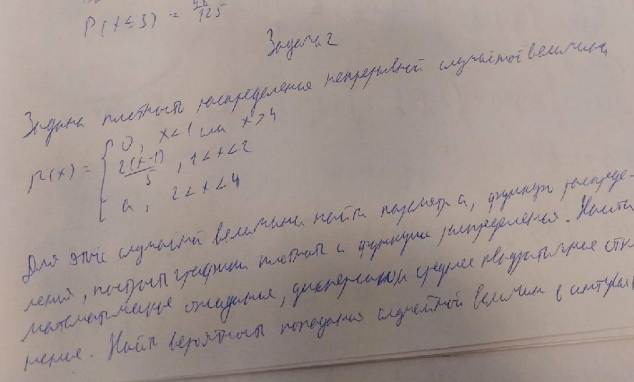 P(x≤3) = 98/125
Задача 2
Задана плотность распределения непрерывной случайной величины
p(x) = { 0, x<1 или x>4
2(x-1)/5, 1<x<2
a, 2<x<4
Для этой случайной величины найти параметр a, функцию распреде-
ления, построить графики плотности и функции распределения. Найти
математическое ожидание, дисперсию и среднее квадратичное откло
нение. Найти вероятность попадания случайной величин в интервал